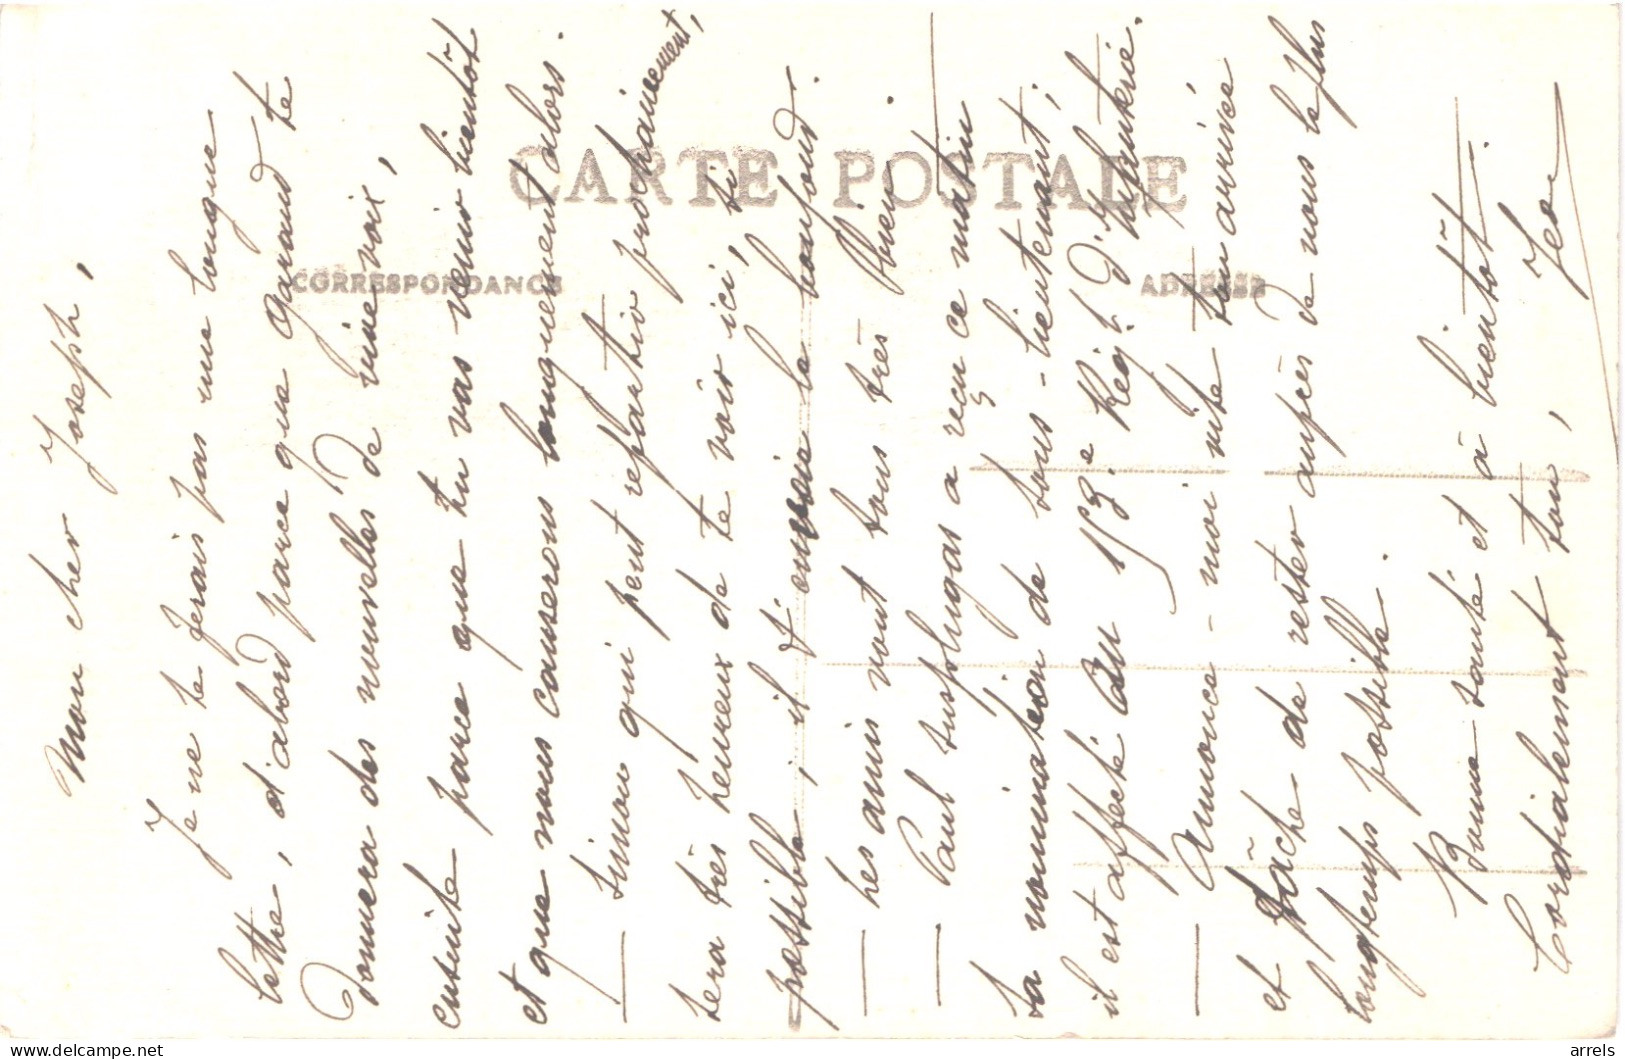 CARTE POSTALE
CORRESPONDANCE
ADRESSE
Mon cher Joseph,
Je ne te ferais pas une longue
lettre, d'abord parce que Armand te
donnera des nouvelles de vive voix,
ensuite parce que tu vas venir bientôt
et que nous causerons longuement alors.
— Simon qui peut repartir prochainement,
sera très heureux de te voir ici, si
possible, il t'envoie le bonjour.
— Les amis vont tous très bien.
— Paul Susplugas a reçu ce matin
sa nomination de sous-lieutenant;
il est affecté au 153e Regt d'Infanterie.
— Annonce-moi vite ton arrivée
et tâche de rester auprès de nous le plus
longtemps possible.
Bonne santé et à bientôt.
Cordialement ton, Jeo
arrels
www.delcampe.net